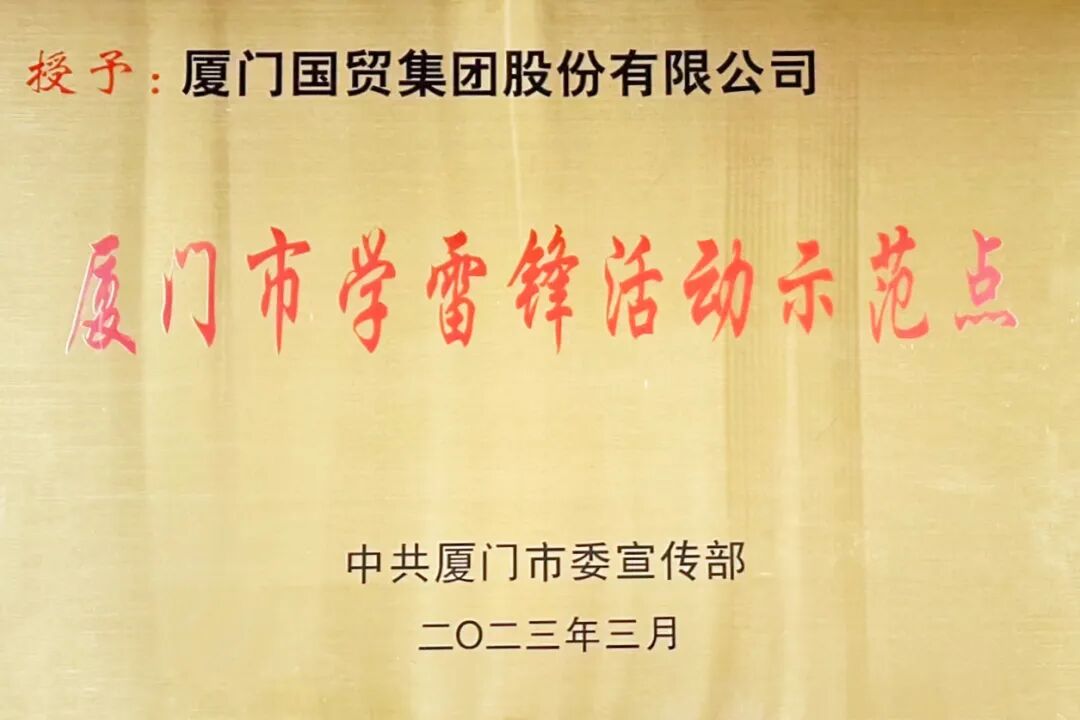 授予：厦门国贸集团股份有限公司
厦门市学雷锋活动示范点
中共厦门市委宣传部
二〇二三年三月